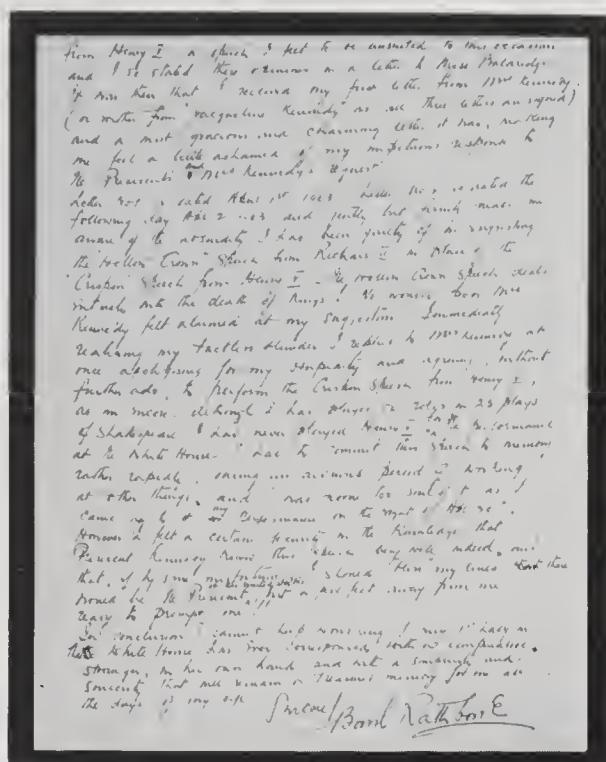 from Henry V a speech I felt to be unsuited to this occasion
and I so stated these opinions in a letter to Miss Baldridge
It was then that I received my first letter from Mrs Kennedy.
(or rather from "Jacqueline Kennedy" as all these letters are signed)
and a most gracious and charming letter it was, making
me feel a little ashamed of my impetuous response to
the President's and Mrs Kennedy's request
Letter No 1 is dated April 1st 1963 Letter No 2 is dated the
following day April 2 and gently but firmly made me
aware of the absurdity I had been guilty of in suggesting
the "Hollow Crown" Speech from Richard II in place of the
"Crispin" Speech from Henry V. The Hollow Crown Speech deals
with the death of Kings! No wonder poor Mrs
Kennedy felt alarmed at my suggestion. Immediately
realising my tactless blunder I replied to Mrs Kennedy at
once apologising for my stupidity and agreeing, without
further ado, to perform the Crispin Speech from Henry V,
as an encore. Although I had played roles in 23 plays
of Shakespeare I had never played Henry V
at the White House. I had to commit this speech to memory
rather rapidly, during
at other things, and
came my performance on the night of
However I felt a certain security in the knowledge that
President Kennedy knew this speech very well indeed, and
that, if by some misfortune I should "blow" my lines there
would be the President of the United States a few feet away from me
ready to prompt me!!
In conclusion I cannot help wondering if any 1st Lady in
the White House has ever corresponded with
stranger, in her own hand and with a simplicity and
sincerity that will remain a treasured memory for me all
the days of my life
Sincerely Basil Rathbone